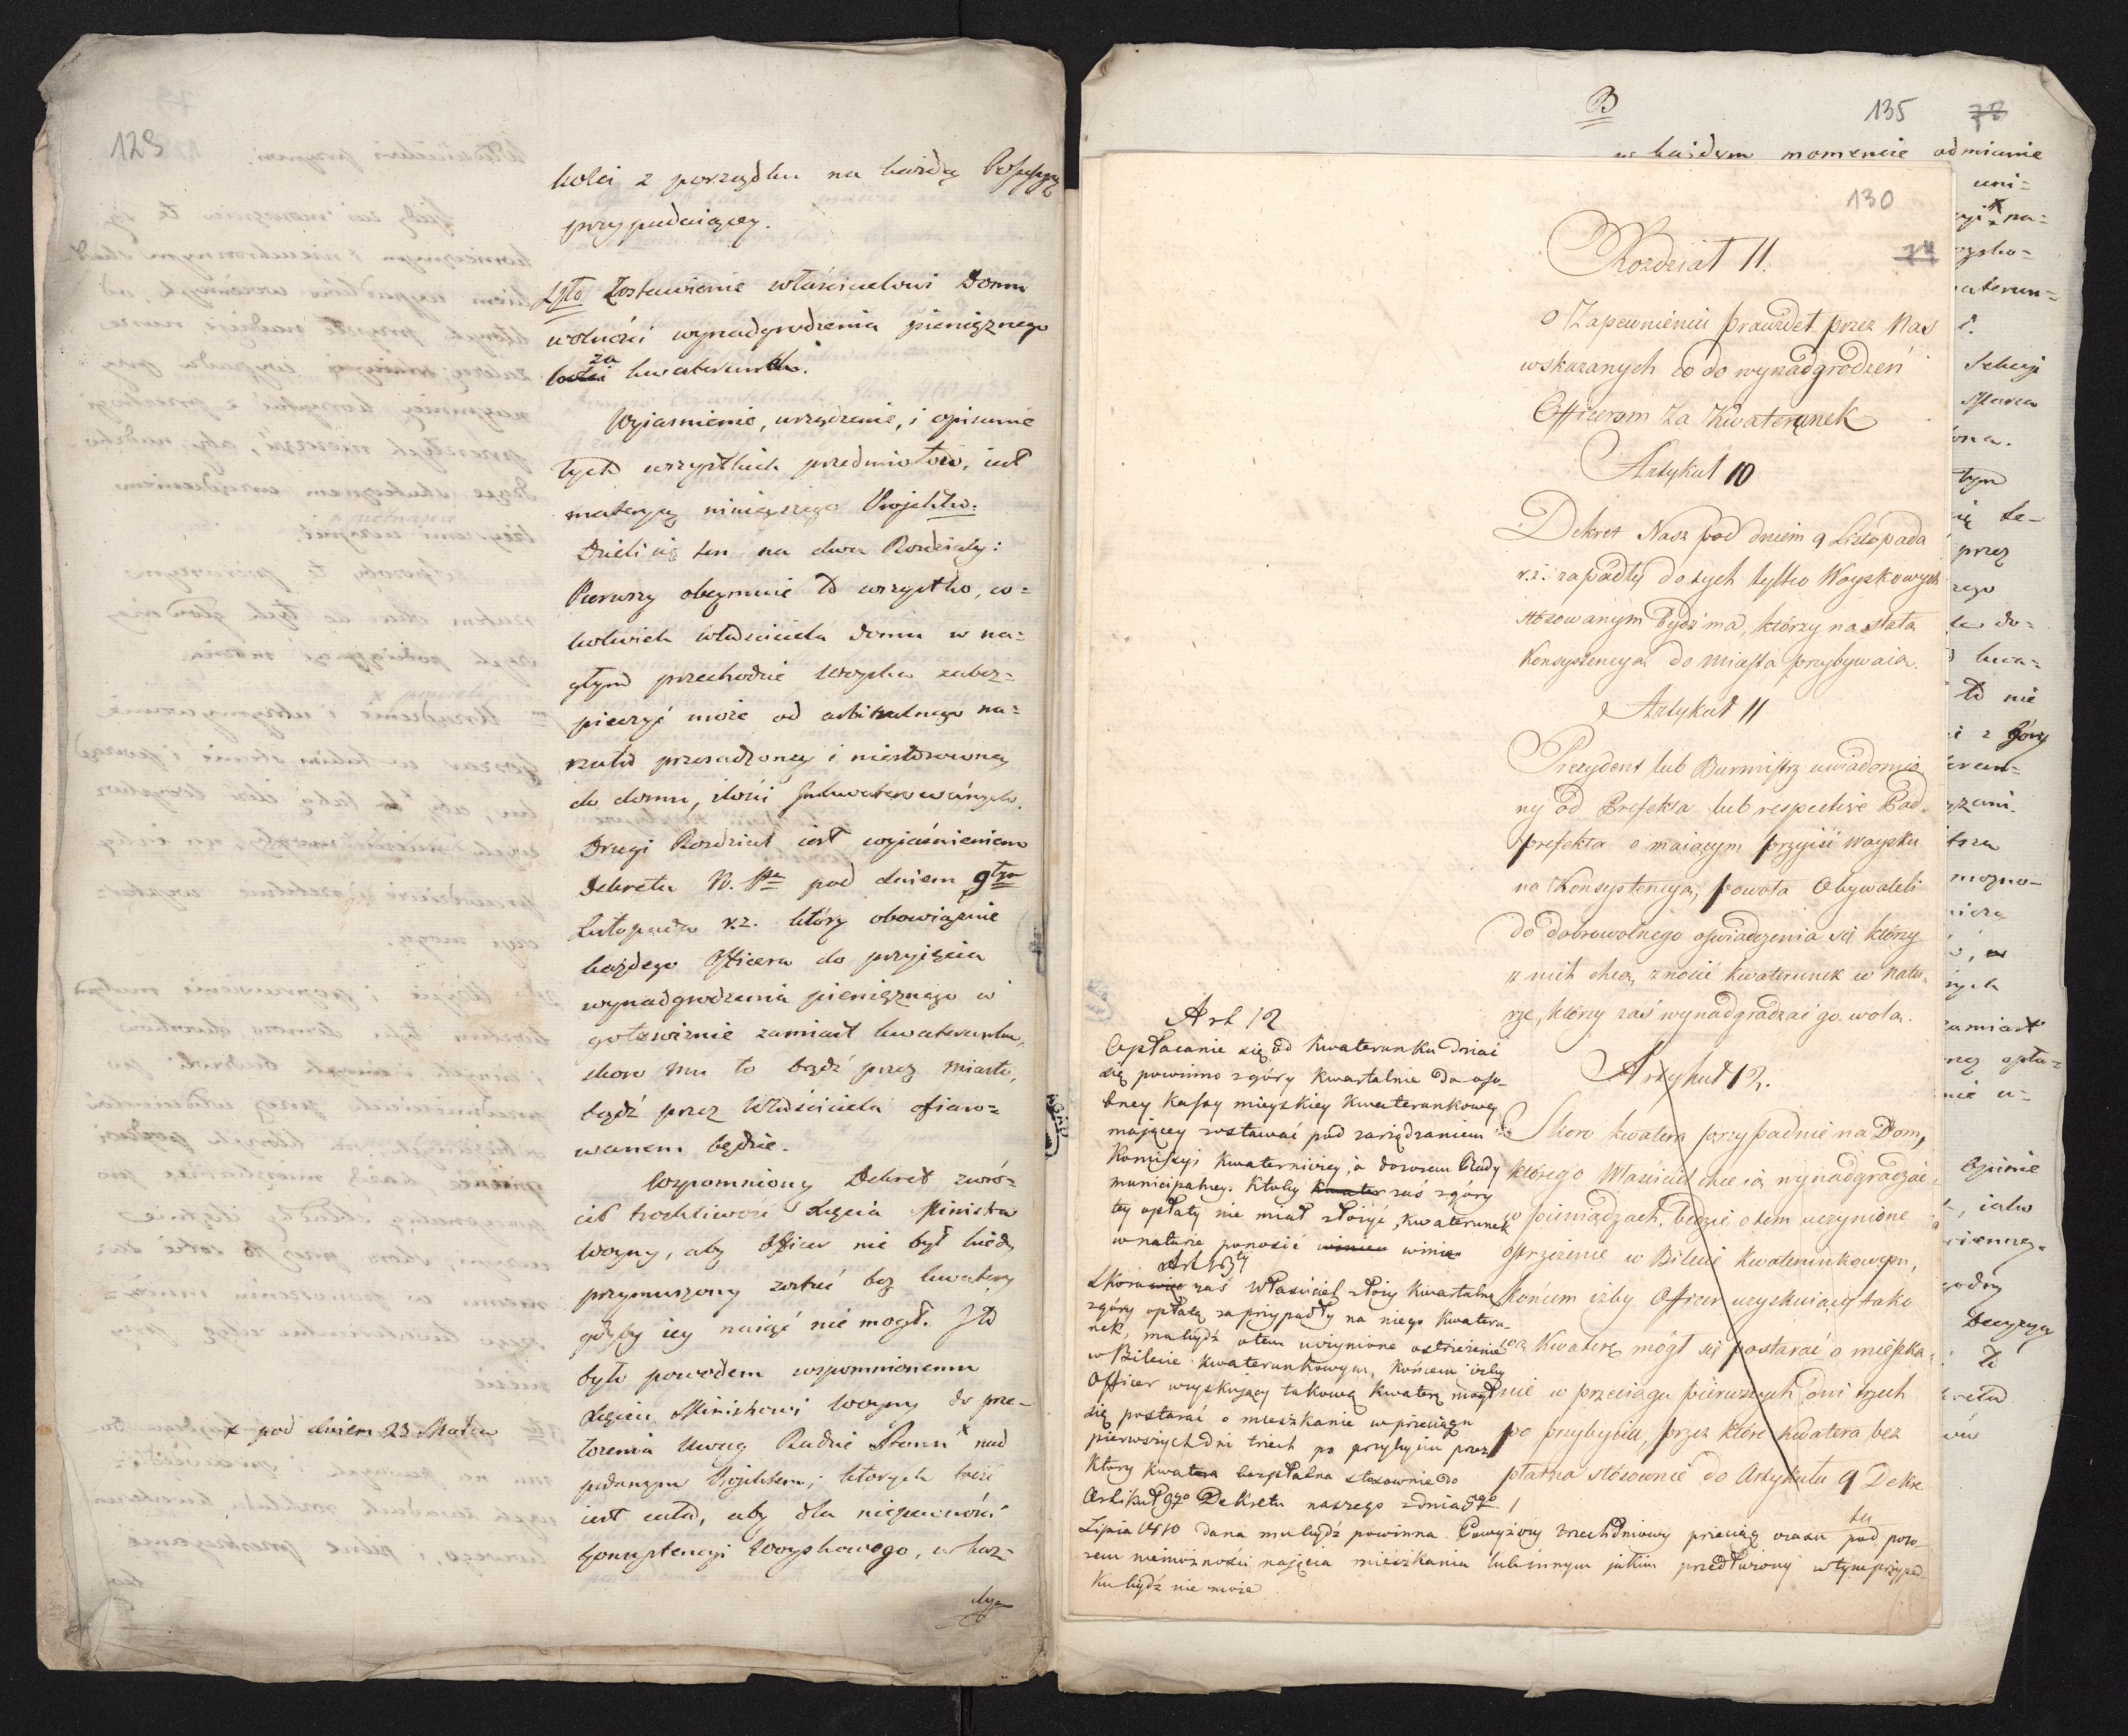 129
kolei z porządku na każdą Possessyą
przypadaiącey.
4to Zostawienie właścicielowi Domu
wolności wynadgrodzenia pieniężnego
za kwaterunek.
Wyjasnienie, urządzenie, i opisanie
tych wszystkich przedmiotów, iest
materyą ninieyszego Projektu.
Dzieli się ten na dwa Rozdziały:
Pierwszy obeymuie to wszystko, co=
kolwiek właściciela domu w na=
głym przechodzie woyska zabez=
pieczyć może od arbitralnego na=
rzutu przesadzoney i niestosowney
do domu, ilości zakwaterowanych.
Drugi Rozdział iest wyiaśnieniem
Dekretu N. Pa pod dniem 9tym
Listopada r.z. który obowiązuie
każdego Officera do przyjęcia
wynadgrodzenia pieniężnego w
gotowiznie zamiast kwaterunku,
skoro mu to bądź przez Miasto,
bądź przez Właściciela ofiaro=
wanem będzie.
Wzpomniony Dekret zwró=
cił troskliwość Xięcia Ministra
Woyny, aby Officer nie był kiedy
przymuszony zostać bez kwatery
gdyby iey naiąć nie mogł. I to
było powodem wspomnionemu
Xięciu Ministrowi Woyny do prze=
łożenia uwag Radzie Stanu x nad
podanym Projektem; których treść
iest cała, aby dla niepewności
Konsystencyi Woyskowego, w każ=
dym
x pod dniem 23 Marca
B
135
78
w każdym momencie odmianie
130
74
Rozdział II.
o Zapewnieniu prawideł przez Nas
wskazanych co do wynadgrodzeń
Officerom za Kwaterunek
Artykuł 10
Dekret Nasz pod dniem 9 Listopada
r.z. zapadły do tych tylko Woyskowych
stosowanym bydź ma, którzy na stałą
Konsystencyą do miasta przybywaią.
Artykuł 11
Prezydent lub Burmistrz uwiadomio
ny od Prefekta lub respective Pod„
prefekta o maiącym przyiść woysku
na Konsystencyą, powoła Obywateli
do dobrowolnego oświadczenia się którzy
z nich chcą znosić kwaterunek w natu„
rze, którzy zaś wynadgradzać go wolą.
Artykuł 12.
Skoro kwatera przypadnie na Dom,
którego Właściciel chce ią wynadgradzać
w pieniądzach, będzie o tem uczynione
ostrzeżenie w Bilecie Kwaterunkowym,
końcem iżby Officer uzyskuiący tako
wą Kwaterę mógł się postarać o mieszka=
nie w przeciągu pierwszych dni trzech
po przybyciu, przez które kwatera bez
płatna stósownie do Artykułu 9 Dekre
Art 12
Opłacanie się od Kwaterunku dziać
się powinno z góry Kwartalnie do oso„
bney Kassy mieyskiey Kwaterunkowey
mającey zostawać pod zarządzaniem
Komissyi Kwaterniczey, a dozorem Rady
municipalney. Ktoby kwater zaś z góry
tey opłaty nie miał złożyć, Kwaterunek
w naturze ponosić winien winien
Art 13ty
Skoro więc zaś Właściciel złoży Kwartalną
z góry opłatę za przypadły na niego Kwateru„
nek, ma bydź o tem uczynione ostrzeżenie
w Bilecie Kwaterunkowym, końcem iżby
Officer uzyskujący takową Kwaterę mogł
się postarać o mieszkanie w przeciągu
pierwszych dni trzech po przybyciu przez
Który Kwatera bezpłatna stosownie do
Artikuł 9go Dekretu naszego z dnia
Lipca 1810 dana mu bydź powinna. Powyższy trzechdniowy przeciąg czasu pod pozo„
rem niemożności najęcia mieszkania lub innym jakim przedłużony w tym przypad„
ku bydź nie może